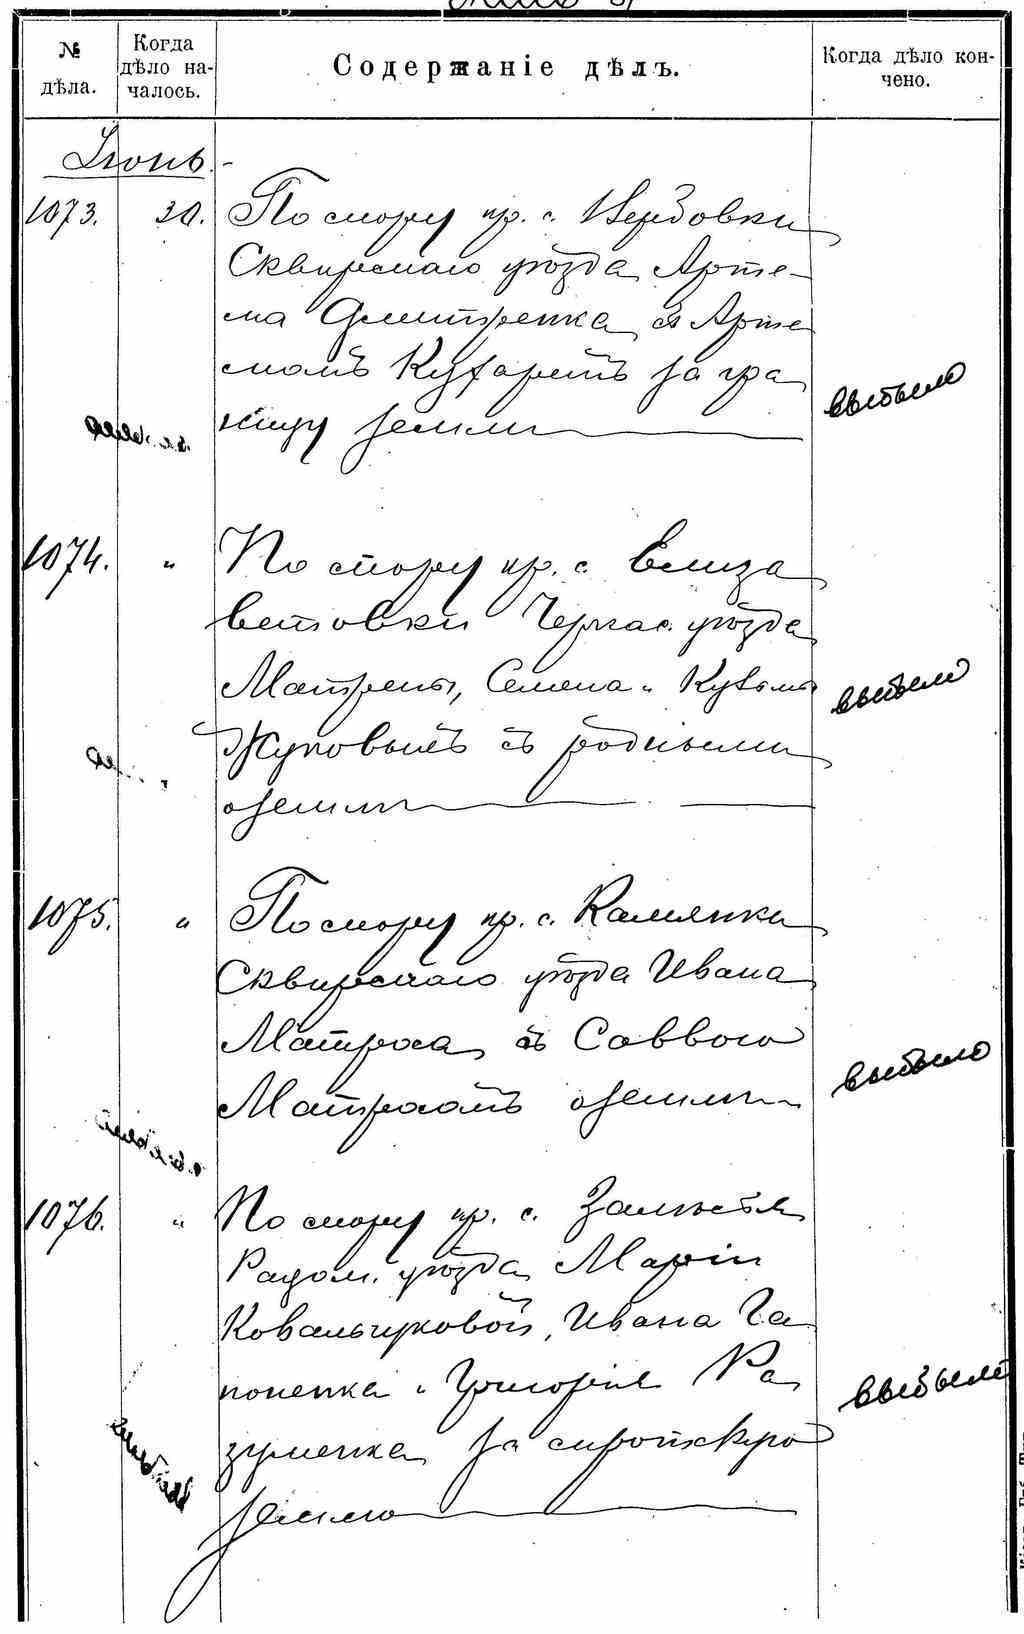 № дѣла.
Когда дѣло на-
чалось.
Содержаніе дѣлъ.
Когда дѣло кон-
чено.
Іюнь.-
1073. 30. По спору кр. с. Вербовки
Сквирскаго уѣзда Арте-
ма Дмитренка съ Арте
момъ Кухаремъ за гра
ницу земли
выбыло
1074. " По спору кр. с. Елиза
ветовки Черкас. уѣзда
Матрены, Семена и Кузьмы
Жуковыхъ съ родными
о земли
выбыло
1075. " По спору кр. с. Камянки
Сквирскаго уѣзда Ивана
Матроса съ Саввою
Матросомъ о земли
выбыло
1076. " По спору кр. с. Замостья
Радом. уѣзда Маріи
Ковальчуковой, Ивана Га
поненка и Григорія Ра
зуменка за сиротскую
землю
выбыло